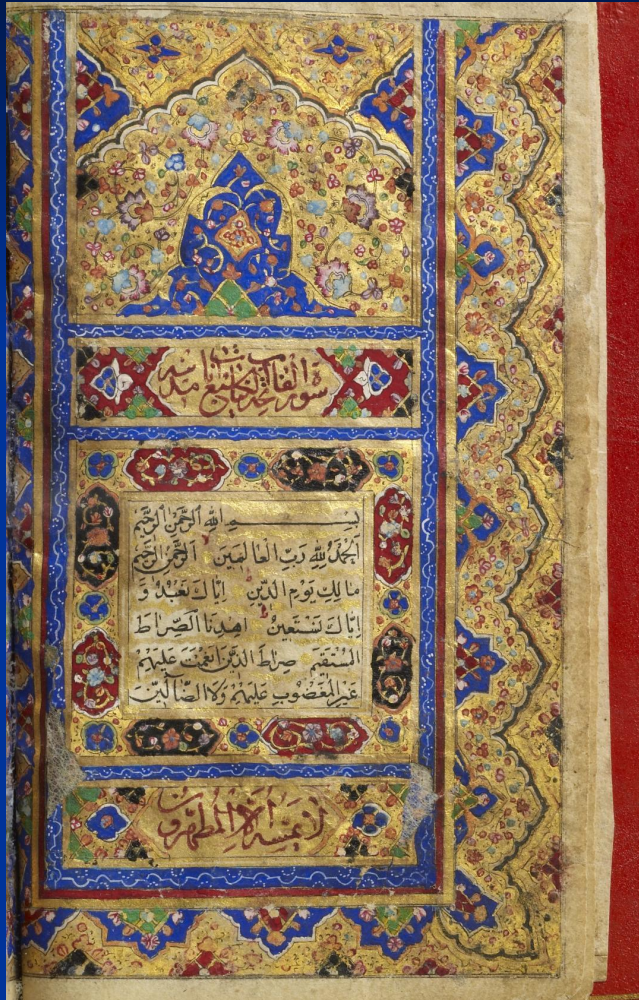 سورة الفاتحة الكتاب سبع آيات مدنية
بِسْمِ اللهِ الرَّحْمٰنِ الرَّحِيْمِ
اَلْحَمْدُ لِلّٰهِ رَبِّ الْعَالَمِيْنَ الرَّحْمٰنِ الرَّحِيْمِ
مَالِكِ يَوْمِ الدِّيْنِ اِيَّاكَ نَعْبُدُ وَ
اِيَّاكَ نَسْتَعِيْنُ اِهْدِنَا الصِّرَاطَ
الْمُسْتَقِيْمَ صِرَاطَ الَّذِيْنَ اَنْعَمْتَ عَلَيْهِمْ
غَيْرِ الْمَغْضُوْبِ عَلَيْهِمْ وَلَا الضَّالِّيْنَ
لا يمسه الا المطهرون